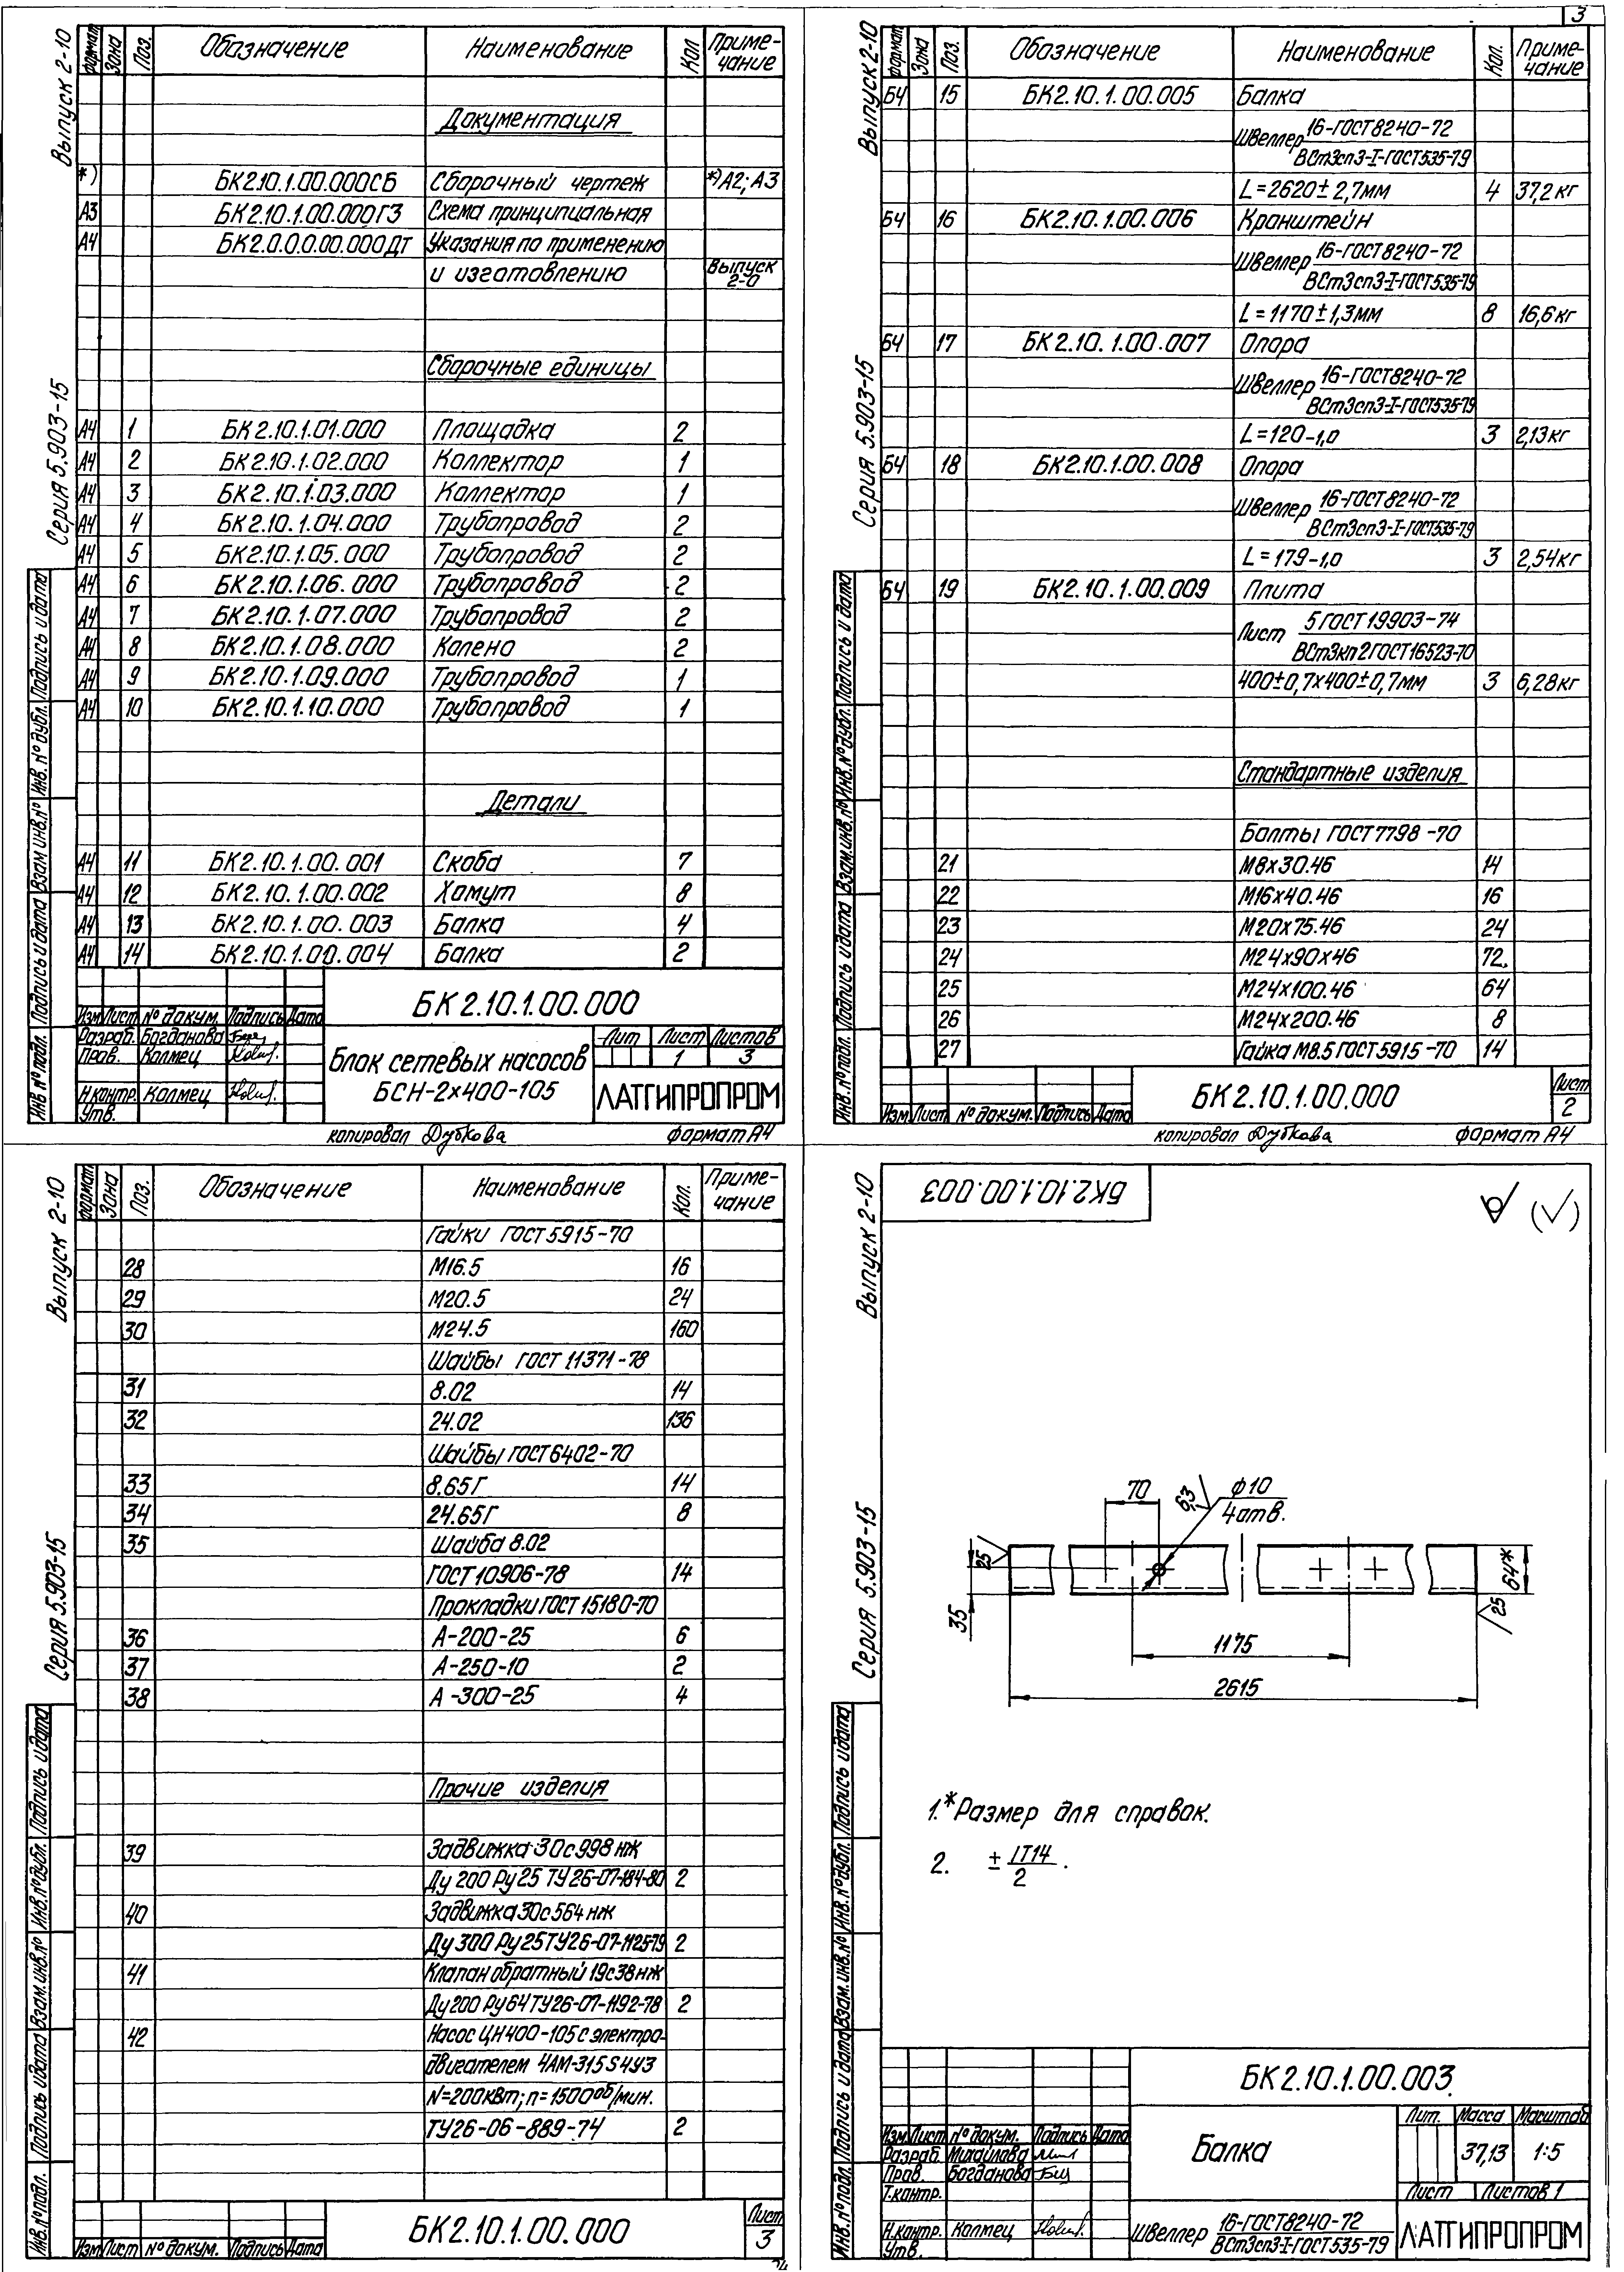 3
Выпуск 2-10
Серия 5.903-15
формат Зона Поз. Обозначение Наименование Кол Приме-
чание
Документация
*) БК2.10.1.00.000СБ Сборочный чертеж *)А2; А3
А3 БК2.10.1.00.000Г3 Схема принципиальная
А4 БК2.0.0.0.00.000ДТ Указания по применению
и изготовлению Выпуск
2-0
Сборочные единицы
А4 1 БК2.10.1.01.000 Площадка 2
А4 2 БК2.10.1.02.000 Коллектор 1
А4 3 БК2.10.1.03.000 Коллектор 1
А4 4 БК2.10.1.04.000 Трубопровод 2
А4 5 БК2.10.1.05.000 Трубопровод 2
А4 6 БК2.10.1.06.000 Трубопровод 2
А4 7 БК2.10.1.07.000 Трубопровод 2
А4 8 БК2.10.1.08.000 Колено 2
А4 9 БК2.10.1.09.000 Трубопровод 1
А4 10 БК2.10.1.10.000 Трубопровод 1
Детали
А4 11 БК2.10.1.00.001 Скоба 7
А4 12 БК2.10.1.00.002 Хомут 8
А4 13 БК2.10.1.00.003 Балка 4
А4 14 БК2.10.1.00.004 Балка 2
Инв.№подл. Подпись и дата Взам.инв.№ Инв.№дубл. Подпись и дата
БК2.10.1.00.000
Изм Лист № докум. Подпись Дата
Разраб. Богданова
Пров. Колмец
Н.контр. Колмец
Утв.
Блок сетевых насосов
БСН-2×400-105
Лит Лист Листов
1 3
ЛАТГИПРОПРОМ
копировал Дубкова формат А4
Выпуск 2-10
Серия 5.903-15
формат Зона Поз. Обозначение Наименование Кол. Приме-
чание
БЧ 15 БК2.10.1.00.005 Балка
Швеллер 16-ГОСТ8240-72
ВСт3сп3-I-ГОСТ535-79
L=2620±2,7мм 4 37,2кг
БЧ 16 БК2.10.1.00.006 Кранштейн
Швеллер 16-ГОСТ8240-72
ВСт3сп3-I-ГОСТ535-79
L=1170±1,3мм 8 16,6кг
БЧ 17 БК2.10.1.00.007 Опора
Швеллер 16-ГОСТ8240-72
ВСт3сп3-I-ГОСТ535-79
L=120-1,0 3 2,13кг
БЧ 18 БК2.10.1.00.008 Опора
Швеллер 16-ГОСТ8240-72
ВСт3сп3-I-ГОСТ535-79
L=179-1,0 3 2,54кг
БЧ 19 БК2.10.1.00.009 Плита
Лист 5 ГОСТ19903-74
ВСт3кп2ГОСТ16523-70
400±0,7×400±0,7мм 3 6,28кг
Стандартные изделия
Болты ГОСТ7798-70
21 М8×30.46 14
22 М16×40.46 16
23 М20×75.46 24
24 М24×90×46 72
25 М24×100.46 64
26 М24×200.46 8
27 Гайка М8.5 ГОСТ5915-70 14
Инв.№подл. Подпись и дата Взам.инв.№ Инв.№дубл. Подпись и дата
Изм Лист № докум. Подпись Дата
БК2.10.1.00.000
Лист
2
копировал Дубкова формат А4
Выпуск 2-10
Серия 5.903-15
формат Зона Поз. Обозначение Наименование Кол. Приме-
чание
Гайки ГОСТ5915-70
28 М16.5 16
29 М20.5 24
30 М24.5 160
Шайбы ГОСТ 11371-78
31 8.02 14
32 24.02 136
Шайбы ГОСТ6402-70
33 8.65Г 14
34 24.65Г 8
35 Шайба 8.02
ГОСТ10906-78 14
Прокладки ГОСТ 15180-70
36 А-200-25 6
37 А-250-10 2
38 А-300-25 4
Прочие изделия
39 Задвижка 30с998нж
Ду 200 Ру25 ТУ26-07-184-80 2
40 Задвижка 30с564нж
Ду 300 Ру25ТУ26-07-1125-79 2
41 Клапан обратный 19с38нж
Ду200 Ру64ТУ26-07-1192-78 2
42 Насос ЦН400-105 с электро-
двигателем 4АМ-315S4У3
N=200кВт; n=1500об/мин.
ТУ26-06-889-74 2
Инв.№подл. Подпись и дата Взам.инв.№ Инв.№дубл. Подпись и дата
Изм Лист № докум. Подпись Дата
БК2.10.1.00.000
Лист
3
Выпуск 2-10
Серия 5.903-15
БК2.10.1.00.003
(√)
70
6,3
Ф10
4отв.
25
35
64*
25
1175
2615
1.*Размер для справок.
2. ± IT14
2 .
Инв.№подл. Подпись и дата Взам.инв.№ Инв.№дубл. Подпись и дата
БК2.10.1.00.003
Изм Лист № докум. Подпись Дата
Разраб. Михайлова
Пров. Богданова
Т.контр.
Н.контр. Колмец
Утв.
Балка
Лит. Масса Масштаб
37,13 1:5
Лист Листов 1
Швеллер 16-ГОСТ8240-72
ВСт3сп3-I-ГОСТ535-79
ЛАТГИПРОПРОМ